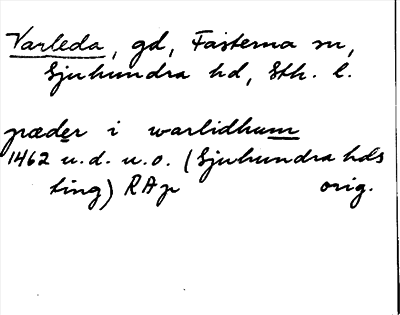 Varleda, gd, Fasterna sn,
Sjuhundra hd, Sth. l.
præder i warlidhum
1462 u.d. u.o. (Sjuhundra hds
ting) RAp orig.